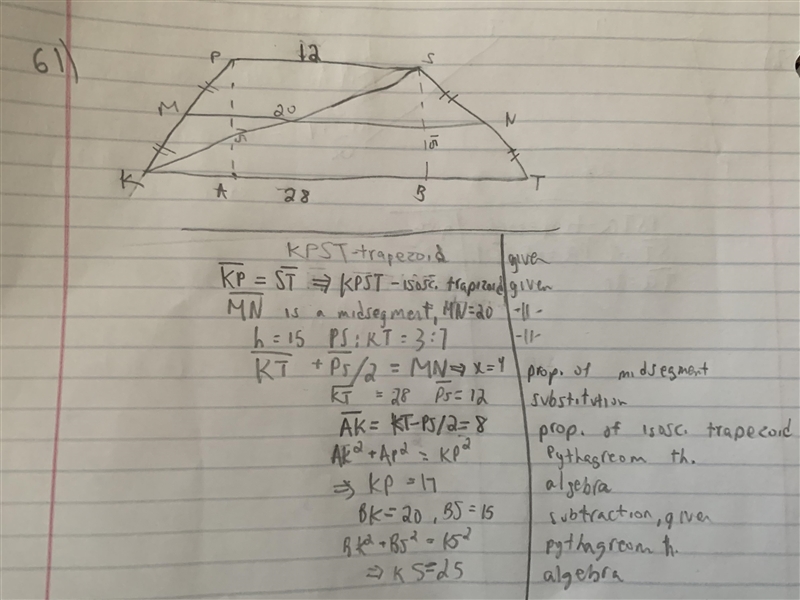 61)
P 12 S
M 20 N
5 15
K A 28 B T
KPST-trapezoid given
KP = ST ⇒ KPST - isosc. trapizoid given
MN is a midsegment, MN=20 -||-
h = 15 PS : KT = 3 : 7 -||-
KT + PS/2 = MN ⇒ x=4 prop. of midsegment
KT = 28 PS = 12 substitution
AK = KT-PS/2 = 8 prop. of isosc. trapezoid
AK² + AP² = KP² Pythagreom th.
⇒ KP = 17 algebra
BK = 20, BS = 15 subtraction, given
BK² + BS² = KS² pythagreom th.
⇒ KS = 25 algebra